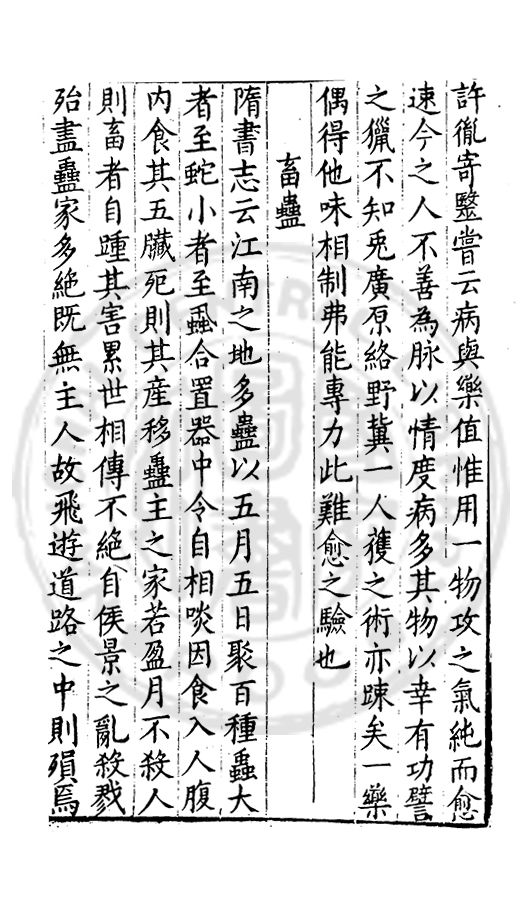 許胤寄毉嘗云病與藥值惟用一物攻之氣純而愈
速今之人不善為脉以情度病多其物以幸有功譬
之獵不知兎廣原絡野冀一人獲之術亦踈矣一藥
偶得他味相制弗能專力此難愈之驗也
畜蠱
隋書志云江南之地多蠱以五月五日聚百種蟲大
者至蛇小者至蝨合置器中令自相啖因食入人腹
内食其五臟死則其産移蠱主之家若盈月不殺人
則畜者自踵其害累世相傳不絶自侯景之亂殺戮
殆盡蠱家多絶既無主人故飛遊道路之中則殞焉